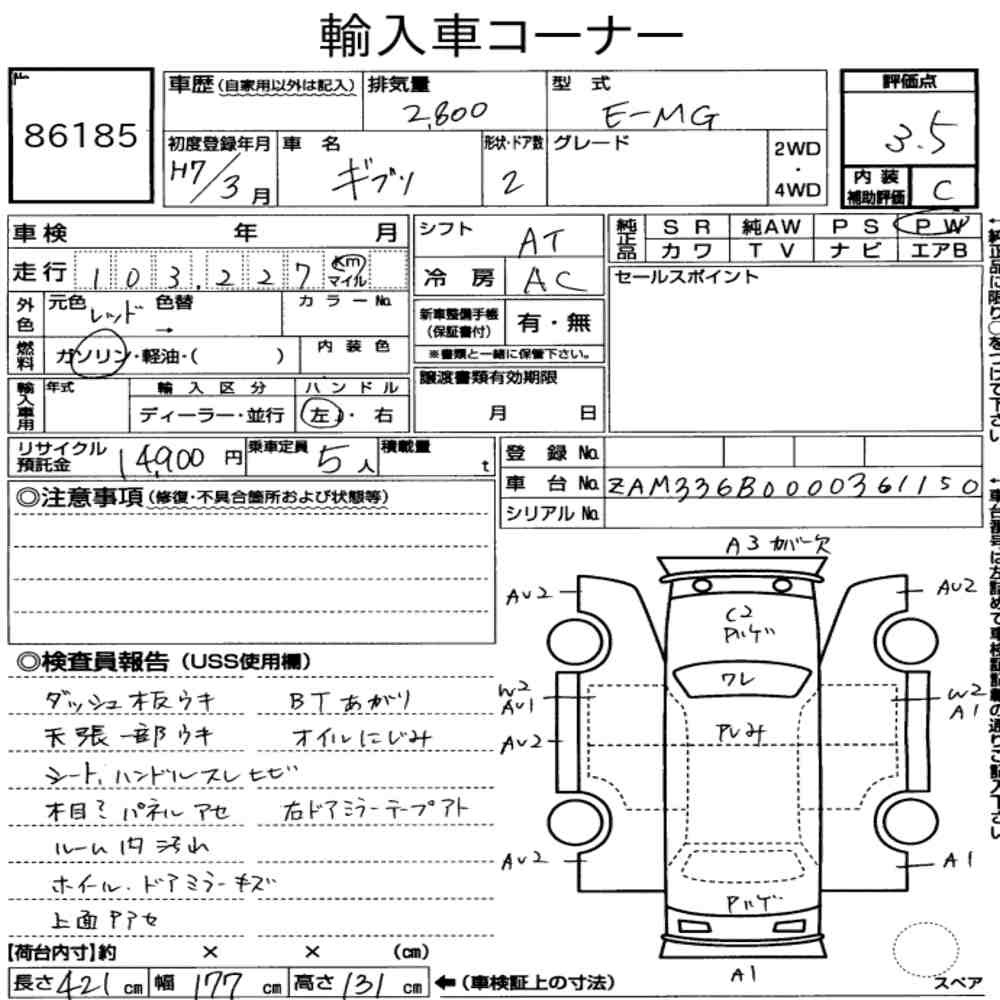 輸入車コーナー
86185
車歴(自家用以外は記入) 排気量 2,800 型式 E-MG 評価点 3.5
初度登録年月 H7/3月 車名 ギブリ 形状・ドア数 2 グレード 2WD・4WD 内装補助評価 C
車検 年 月
走行 103,227 km マイル
外色 元色 レッド 色替 → カラーNo.
燃料 ガソリン・軽油・( ) 内装色
輸入車用 年式 輸入区分 ディーラー・並行 ハンドル 左・右
シフト AT
冷房 AC
新車整備手帳(保証書付) 有・無
※書類と一緒に保管下さい。
譲渡書類有効期限
月 日
純正品 SR 純AW PS PW
カワ TV ナビ エアB
セールスポイント
←純正品に限り○をつけて下さい
リサイクル預託金 14,900円 乗車定員 5人 積載量 t
登録No.
車台No. ZAM336B0000361150
シリアルNo.
←車台番号は左詰めで車検証記載の通りご記入下さい
◎注意事項(修復・不具合箇所および状態等)
◎検査員報告(USS使用欄)
ダッシュ板ウキ BTあがり
天張一部ウキ オイルにじみ
シート、ハンドルスレヒビ
木目ミパネルアセ 右ドアミラーテープアト
ルーム内汚れ
ホイール・ドアミラーキズ
上面Pアセ
A3 カバー欠
AU2 AU2
C2
Pハゲ
ワレ
W2 W2
AU1 A1
Pしみ
AU2
AU2 A1
Pハゲ
A1
スペア
【荷台内寸】約 × × (cm)
長さ421cm 幅177cm 高さ131cm ←(車検証上の寸法)